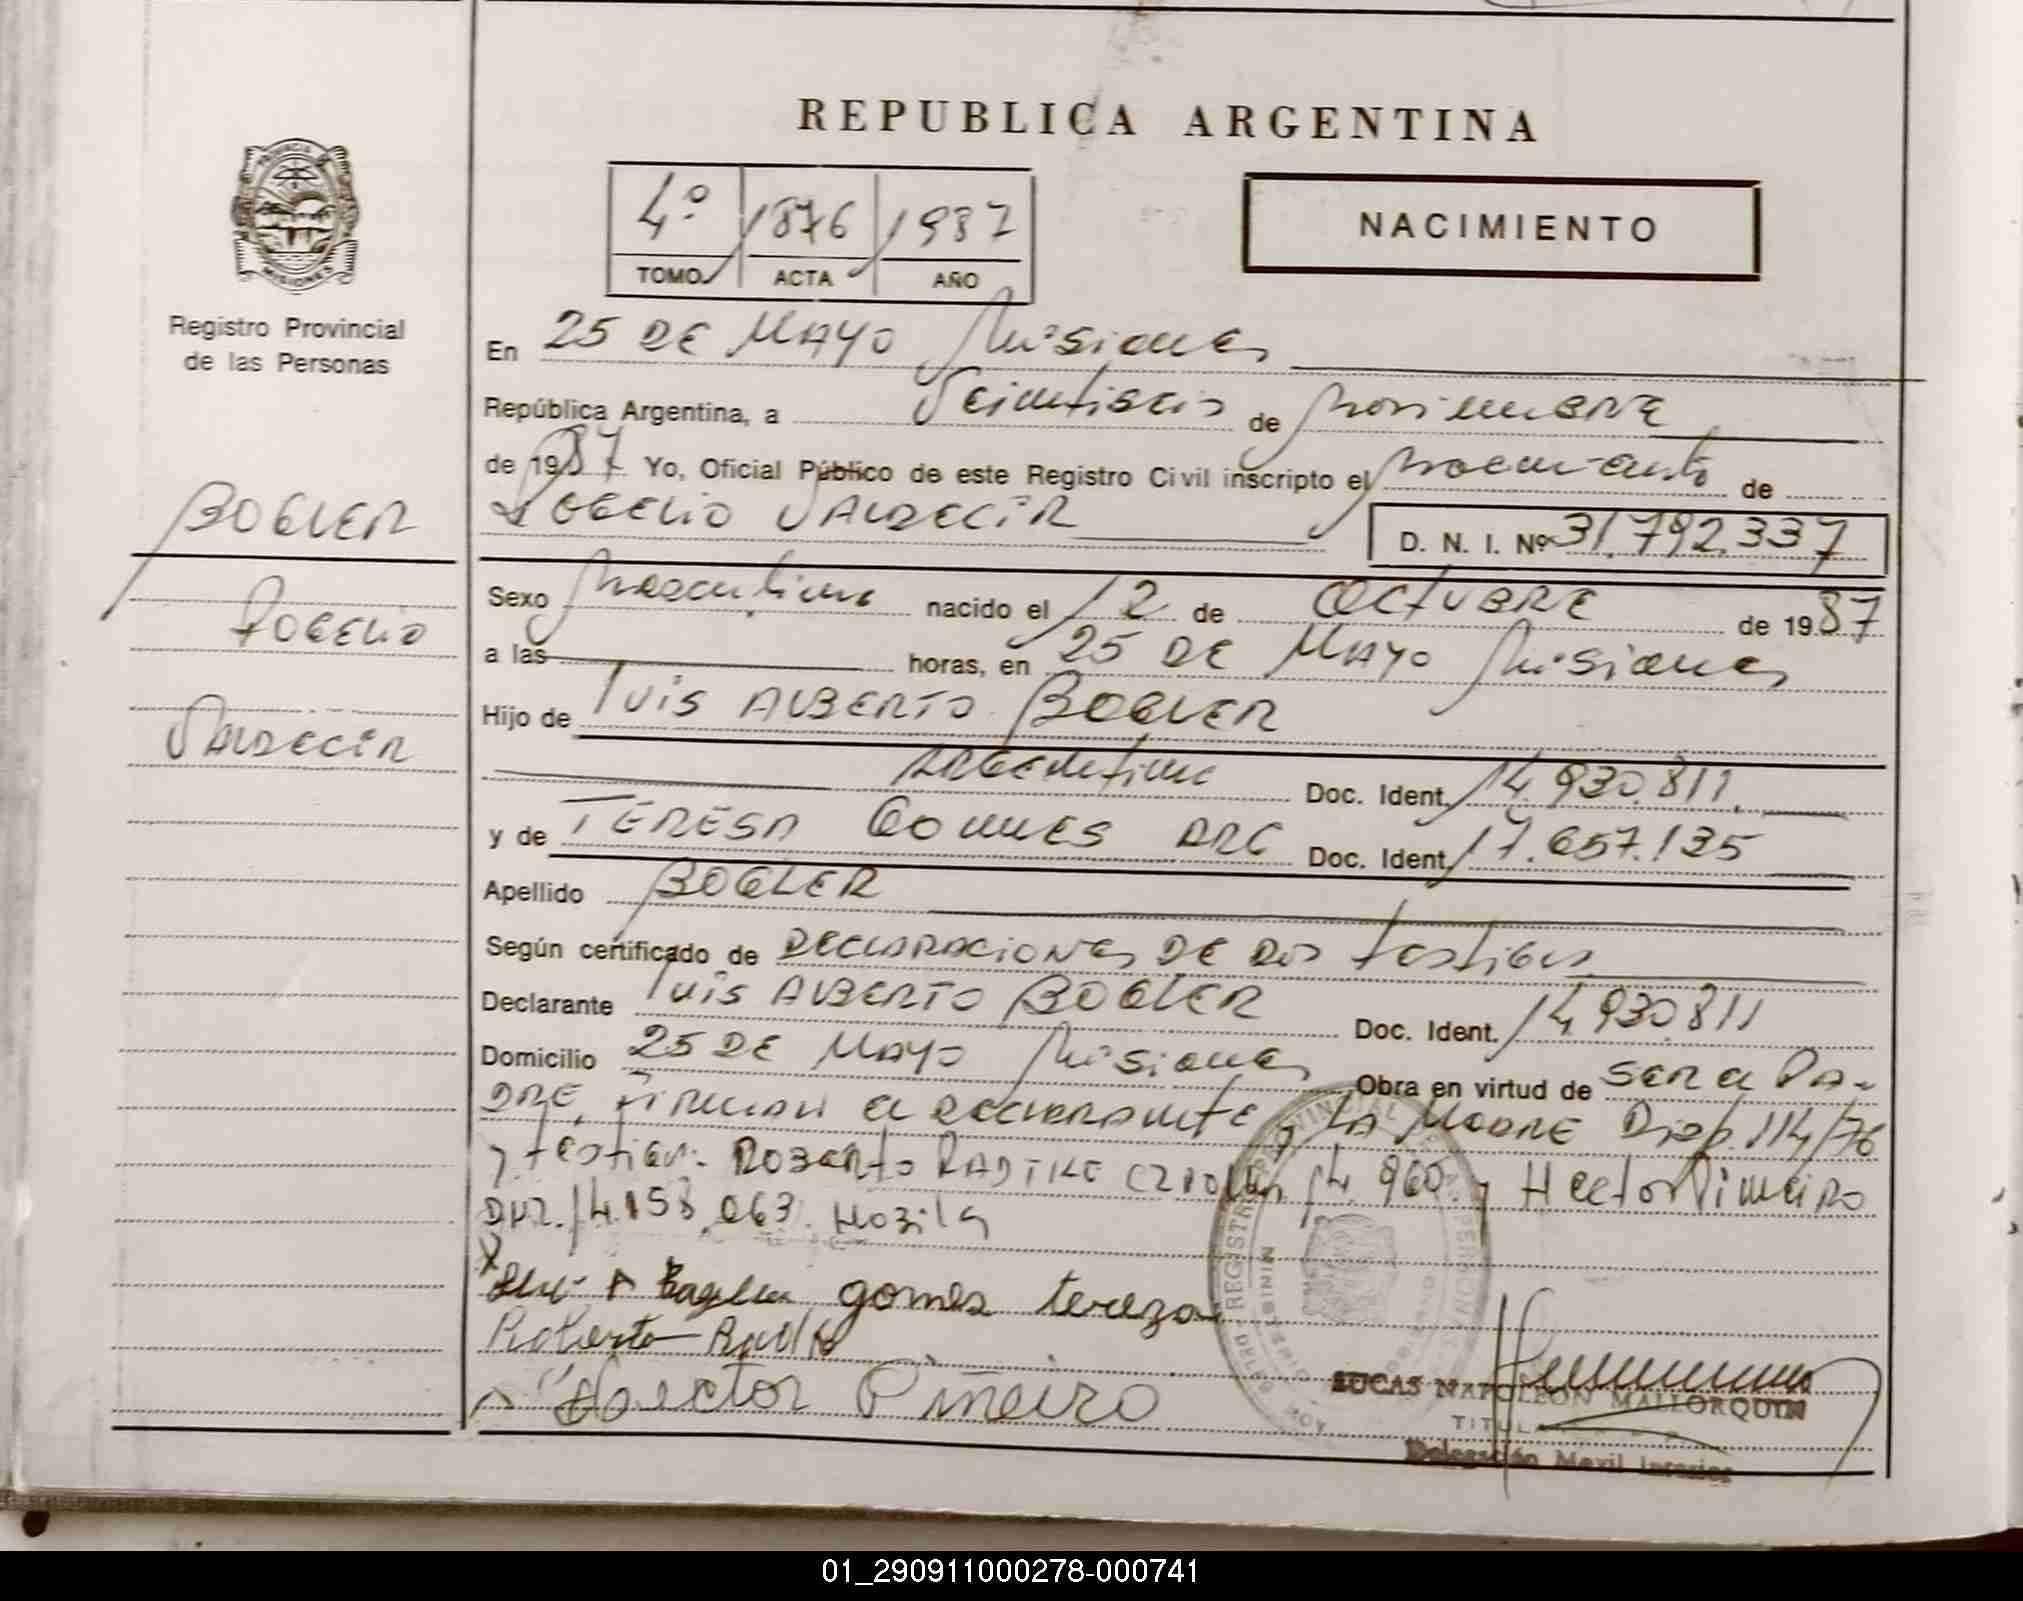 REPUBLICA ARGENTINA
PROVINCIA DE MISIONES
4º 1876 1987
TOMO ACTA AÑO
NACIMIENTO
Registro Provincial
de las Personas
BOGLER
ROGELIO
VALDECIR
En 25 DE MAYO Misiones
República Argentina, a Veintiseis de Noviembre
de 1987 Yo, Oficial Público de este Registro Civil inscripto el Nacimiento de
ROGELIO VALDECIR D. N. I. Nº 31.792.337
Sexo Masculino nacido el 12 de OCTUBRE de 19 87
a las horas, en 25 DE MAYO Misiones
Hijo de LUIS ALBERTO BOGLER
ARGENTINO Doc. Ident. 14.930.811
y de TERESA GOMES ARG Doc. Ident. 17.657.135
Apellido BOGLER
Según certificado de DECLARACIONES DE DOS testigos
Declarante LUIS ALBERTO BOGLER Doc. Ident. 14.930.811
Domicilio 25 DE MAYO Misiones Obra en virtud de SER el PA-
DRE, FIRMAN el DECLARANTE y LA MADRE Disp. 114/76
y testigos: ROBERTO RADTKE 14.960. y Hector Pineiro
DNI. 14.153.063.
gomes tereza
Roberto
Hector Piñeiro
LUCAS NAPOLEON MALLORQUIN
TITULAR
Delegación Movil
01_290911000278-000741